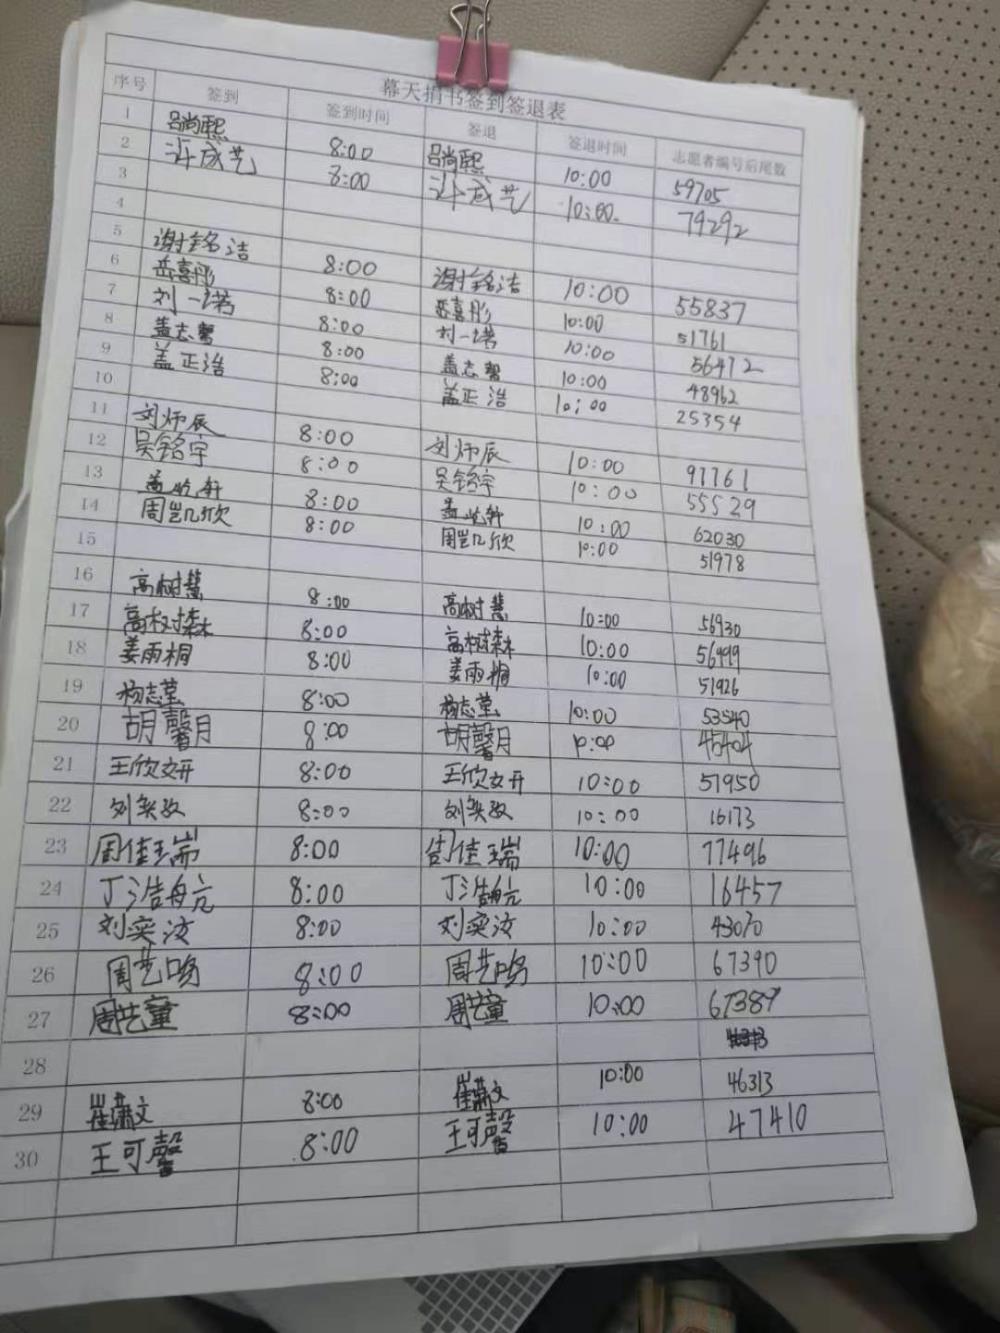 幕天捐书签到签退表
序号 签到 签到时间 签退 签退时间 志愿者编号后尾数
1 吕尚熙 8:00 吕尚熙 10:00 59705
2 许成艺 8:00 许成艺 10:00. 79292
3
4
5 谢铭洁 8:00 谢铭洁 10:00 55837
6 岳喜彤 8:00 岳喜彤 10:00 51761
7 刘一诺 8:00 刘一诺 10:00 56472
8 盖志馨 8:00 盖志馨 10:00 48962
9 盖正浩 8:00 盖正浩 10:00 25354
10
11 刘炳辰 8:00 刘炳辰 10:00 97761
12 吴铭宇 8:00 吴铭宇 10:00 55529
13 8:00 10:00 62030
14 周凯欣 8:00 周凯欣 10:00 51978
15
16 高树慧 8:00 高树慧 10:00 56930
17 高树森 8:00 高树森 10:00 56999
18 姜雨桐 8:00 姜雨桐 10:00 51926
19 杨志莹 8:00 杨志莹 10:00 53540
20 胡馨月 8:00 胡馨月 10:00 45404
21 王欣妍 8:00 王欣妍 10:00 57950
22 8:00 10:00 16173
23 周佳瑞 8:00 周佳瑞 10:00 77496
24 丁浩航 8:00 丁浩航 10:00 16457
25 刘奕汝 8:00 刘奕汝 10:00 43070
26 周艺鸣 8:00 周艺鸣 10:00 67390
27 周艺童 8:00 周艺童 10:00 67389
28
29 崔潇文 8:00 崔潇文 10:00 46313
30 王可馨 8:00 王可馨 10:00 47410